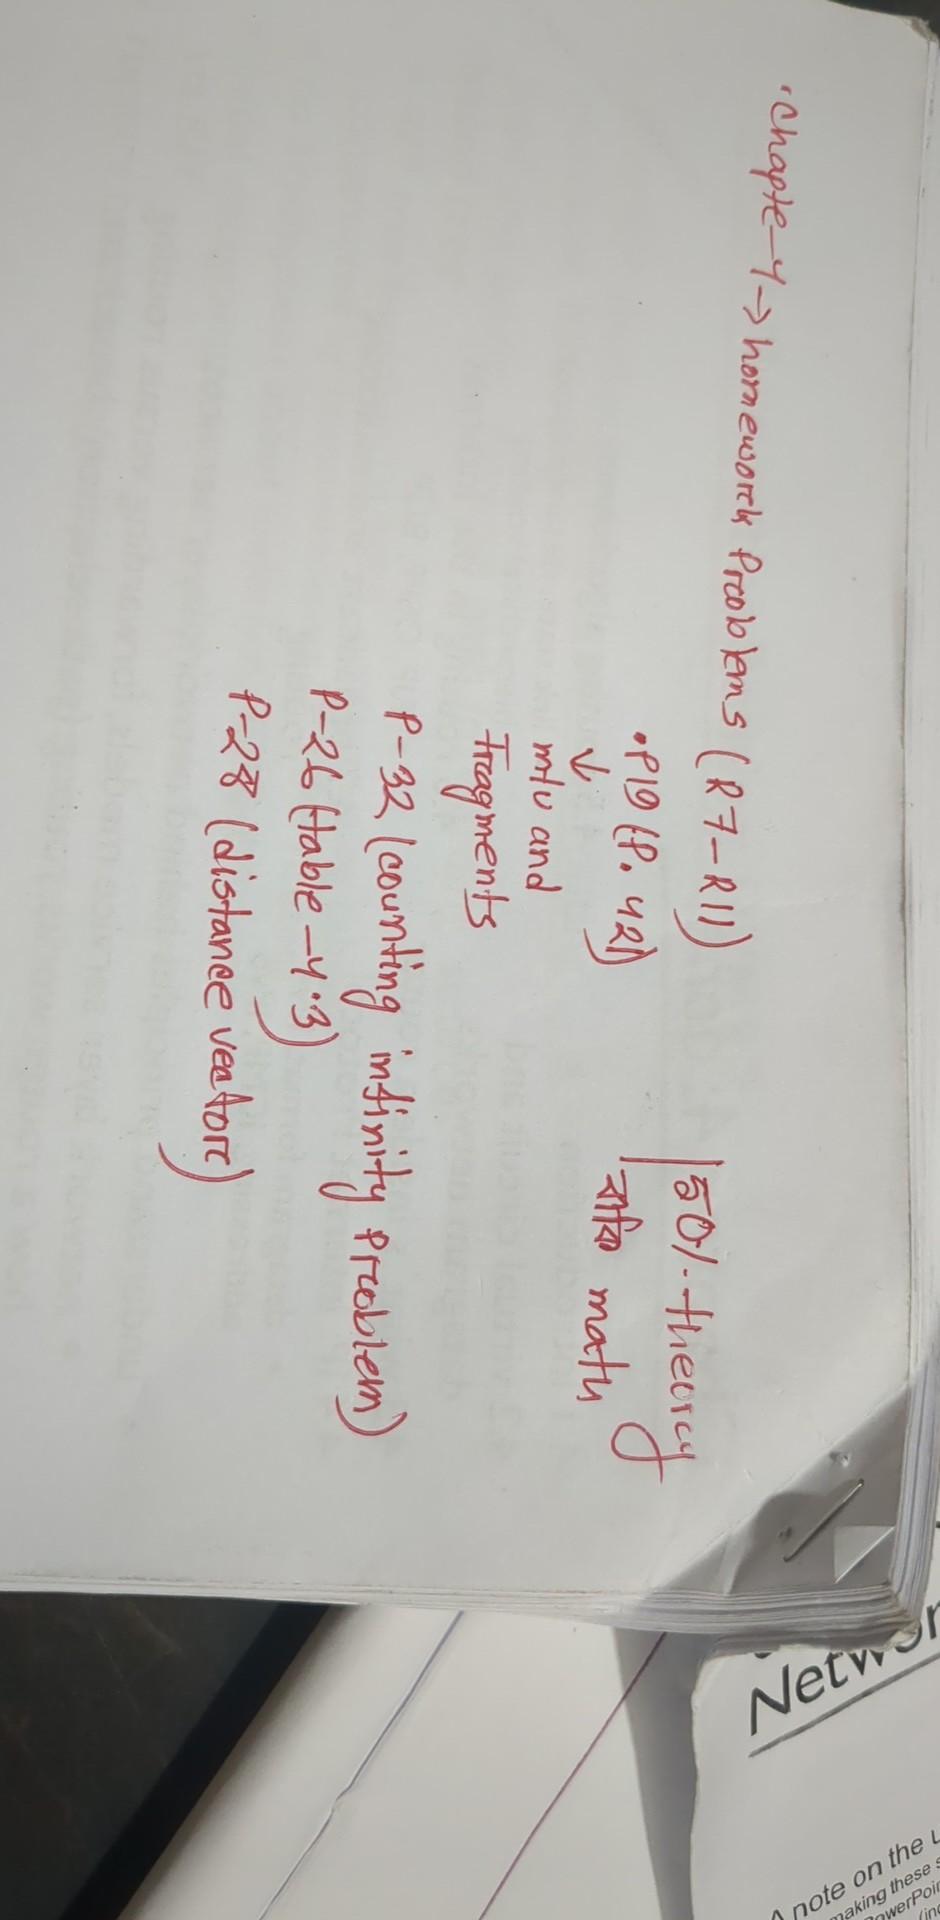 . Chapte-4 → homework Problems (R7-R11)
• P19 (P. 421)
↓
mtu and
fragments
P-32 (counting infinity Problem)
P-26 (table-4.3)
P-28 (distance veator)
50%. theory
বাকি math
Networ
A note on the u
making these s
PowerPoin
(inc